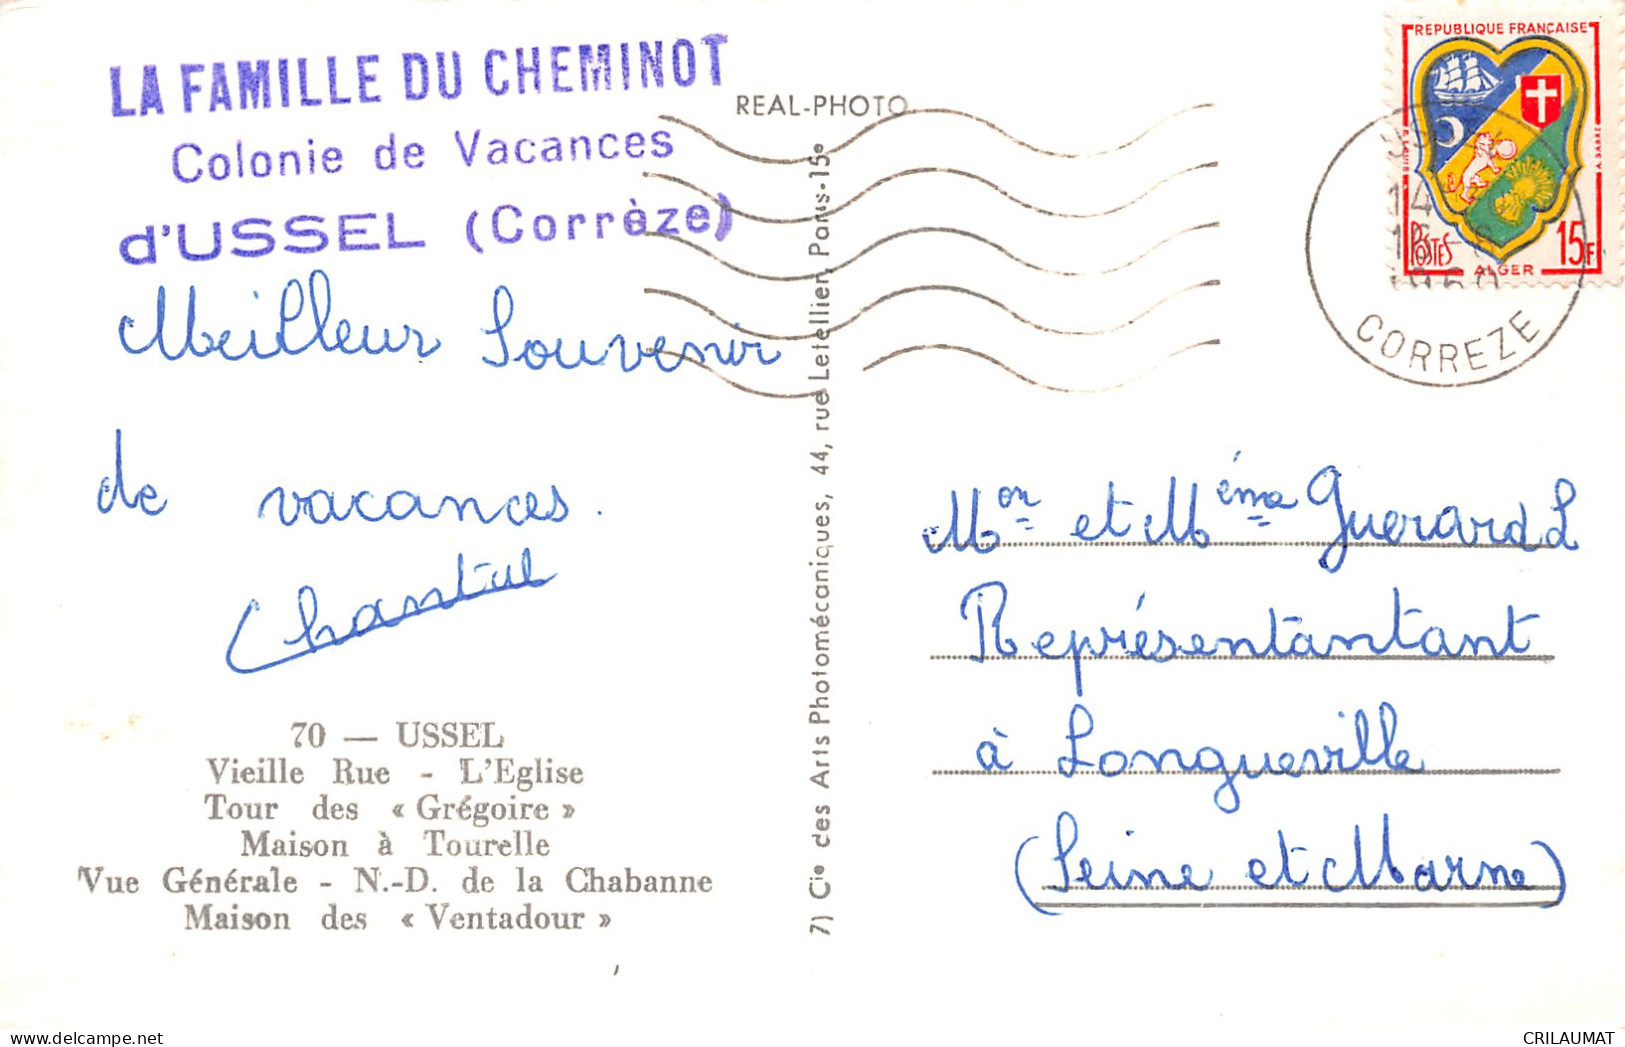 LA FAMILLE DU CHEMINOT
Colonie de Vacances
d'USSEL (Corrèze)
Meilleur Souvenir
de vacances.
Chantal
70 — USSEL
Vieille Rue - L'Eglise
Tour des « Grégoire »
Maison à Tourelle
Vue Générale - N.-D. de la Chabanne
Maison des « Ventadour »
REAL-PHOTO
7) Cie des Arts Photomécaniques, 44, rue Letellier, Paris-15e
REPUBLIQUE FRANÇAISE
POSTES
15F
ALGER
14
CORREZE
Mon et Mème Guerard L
Représentantant
à Longueville
(Seine et Marne)
CRILAUMAT